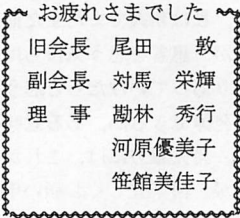 お疲れさまでした
旧会長　尾田　　敦
副会長　対馬　栄輝
理　事　勘林　秀行
河原優美子
笹館美佳子